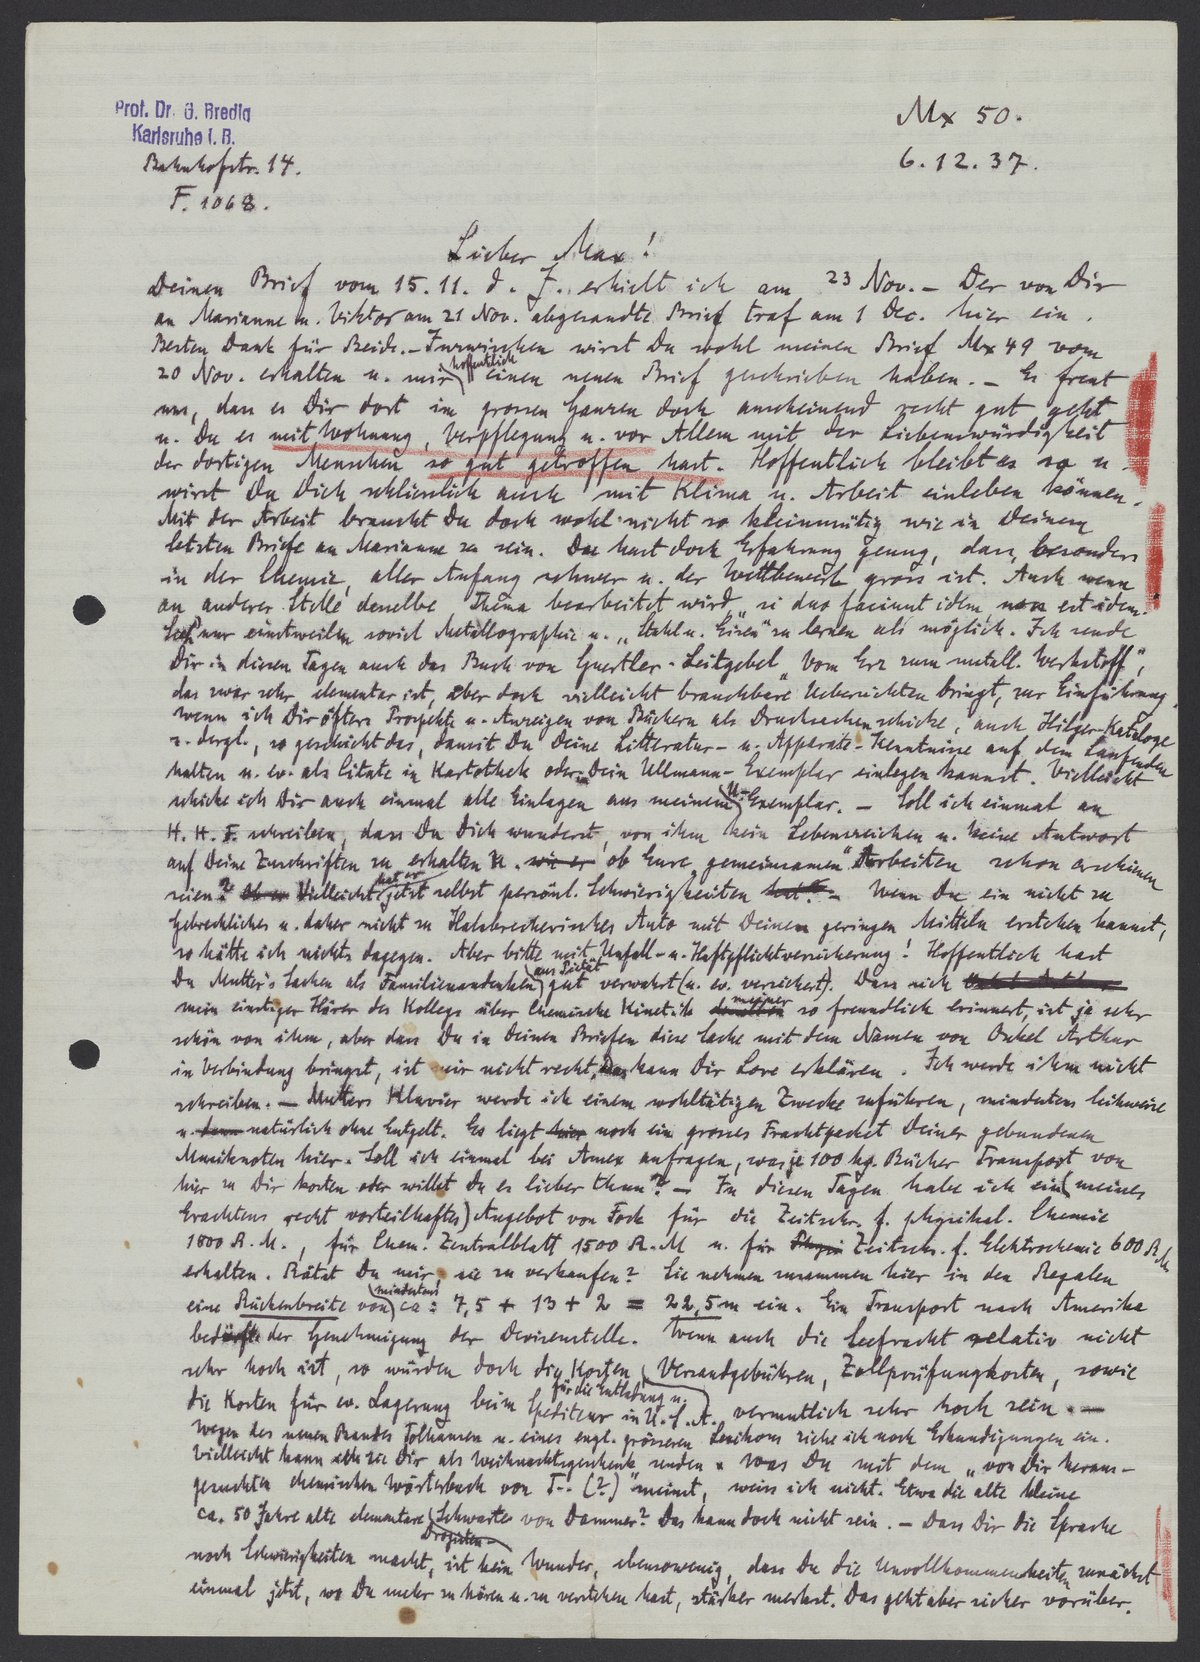 Prof. Dr. G. Bredig
Karlsruhe i. B.
Bahnhofstr. 14.
F. 1068.
Mx 50.
6.12.37.
Lieber Max!
Deinen Brief vom 15.11. d. J. erhielt ich am 23 Nov. – Der von Dir
an Marianne u. Viktor am 21 Nov. abgesandte Brief traf am 1 Dec. hier ein.
Besten Dank für Beide. – Inzwischen wirst Du wohl meinen Brief Mx 49 vom
20 Nov. erhalten u. mir hoffentlich einen neuen Brief geschrieben haben. – Es freut
uns, dass es Dir dort im grossen Ganzen doch anscheinend recht gut geht
u. Du es mit Wohnung, Verpflegung u. vor Allem mit der Liebenswürdigkeit
der dortigen Menschen so gut getroffen hast. Hoffentlich bleibt es so u.
wirst Du Dich schliesslich auch mit Klima u. Arbeit einleben können.
Mit der Arbeit brauchst Du doch wohl nicht so kleinmütig wie in Deinem
letzten Briefe an Marianne zu sein. Du hast doch Erfahrung genug, dass, besonders
in der Chemie, aller Anfang schwer u. der Wettbewerb gross ist. Auch wenn
an anderer Stelle dasselbe Thema bearbeitet wird, „si duo faciunt idem, non est idem."
nur einstweilen soviel Metallographie u. „Stahl u. Eisen" zu lernen als möglich. Ich sende
Dir in diesen Tagen auch das Buch von Guertler-Leitgebel „Vom Erz zum metall. Werkstoff",
das zwar sehr elementar ist, aber doch vielleicht brauchbare Uebersichten bringt, zur Einführung.
Wenn ich Dir öfters Prospekte u. Anzeigen von Büchern als Drucksachen schicke, auch Hilger-Kataloge
u. dergl., so geschieht das, damit Du Deine Litteratur- u. Apparate-Kenntnisse auf dem Laufenden
halten u. ev. als Citate in Kartothek oder in Dein Ullmann-Exemplar einlegen kannst. Vielleicht
schicke ich Dir auch einmal alle Einlagen aus meinem U-Exemplar. – Soll ich einmal an
H. H. F. schreiben, dass Du Dich wunderst, von ihm kein Lebenszeichen u. keine Antwort
auf Deine Zuschriften zu erhalten u. wie er ob Eure „gemeinsamen" Arbeiten schon erschienen
seien? Vielleicht hat er jetzt selbst persönl. Schwierigkeiten hat? – Wenn Du ein nicht zu
Gebrechliches u. daher nicht zu Halsbrecherisches Auto mit Deinen geringen Mitteln erstehen kannst,
so hätte ich nichts dagegen. Aber bitte mit Unfall- u. Haftpflichtversicherung! Hoffentlich hast
Du Mutter's Sachen als Familienandenken aus Pietät gut verwahrt (u. ev. versichert). Dass sich
mein einstiger Hörer des Kollegs über Chemische Kinetik meiner so freundlich erinnert, ist ja sehr
schön von ihm, aber dass Du in Deinen Briefen diese Sache mit dem Namen von Onkel Arthur
in Verbindung bringst, ist mir nicht recht. Das kann Dir Lore erklären. Ich werde ihm nicht
schreiben. – Mutters Klavier werde ich einem wohltätigen Zwecke zuführen, mindestens leihweise
u. natürlich ohne Entgelt. Es liegt hier noch ein grosses Frachtpacket Deiner gebundenen
Musiknoten hier. Soll ich einmal bei Amex anfragen, was je 100 kg. Bücher Transport von
hier zu Dir kosten oder willst Du es lieber thun? – In diesen Tagen habe ich ein (meines
Erachtens recht vorteilhaftes) Angebot von Fock für die Zeitschr. f. physikal. Chemie
1800 R.M., für Chem. Zentralblatt 1500 R.M u. für Zeitschr. f. Elektrochemie 600 RM
erhalten. Rätst Du mir, sie zu verkaufen? Sie nehmen zusammen hier in den Regalen
eine Rückenbreite von mindestens ca: 7,5 + 13 + 2 = 22,5 m ein. Ein Transport nach Amerika
bedürfte der Genehmigung der Devisenstelle. Wenn auch die Seefracht relativ nicht
sehr hoch ist, so würden doch die Kosten für die Entladung u. Versandgebühren, Zollprüfungskosten, sowie
die Kosten für ev. Lagerung beim Spediteur in U.S.A. vermutlich sehr hoch sein. –
Wegen des neuen Bandes Tolhausen u. eines engl. grösseren Lexikons ziehe ich noch Erkundigungen ein.
Vielleicht kann ich sie Dir als Weihnachtsgeschenk senden. Was Du mit dem „von Dir heraus-
gesuchten chemischen Wörterbuch von T-- (?)" meinst, weiss ich nicht. Etwa die alte kleine
ca. 50 Jahre alte elementare Drogisten-Schwarte von Dammer? Das kann doch nicht sein. – Dass Dir die Sprache
noch Schwierigkeiten macht, ist kein Wunder, ebensowenig, dass Du die Unvollkommenheiten zunächst
einmal jetzt, wo Du mehr zu hören u. zu verstehen hast, stärker merkst. Das geht aber sicher vorüber.